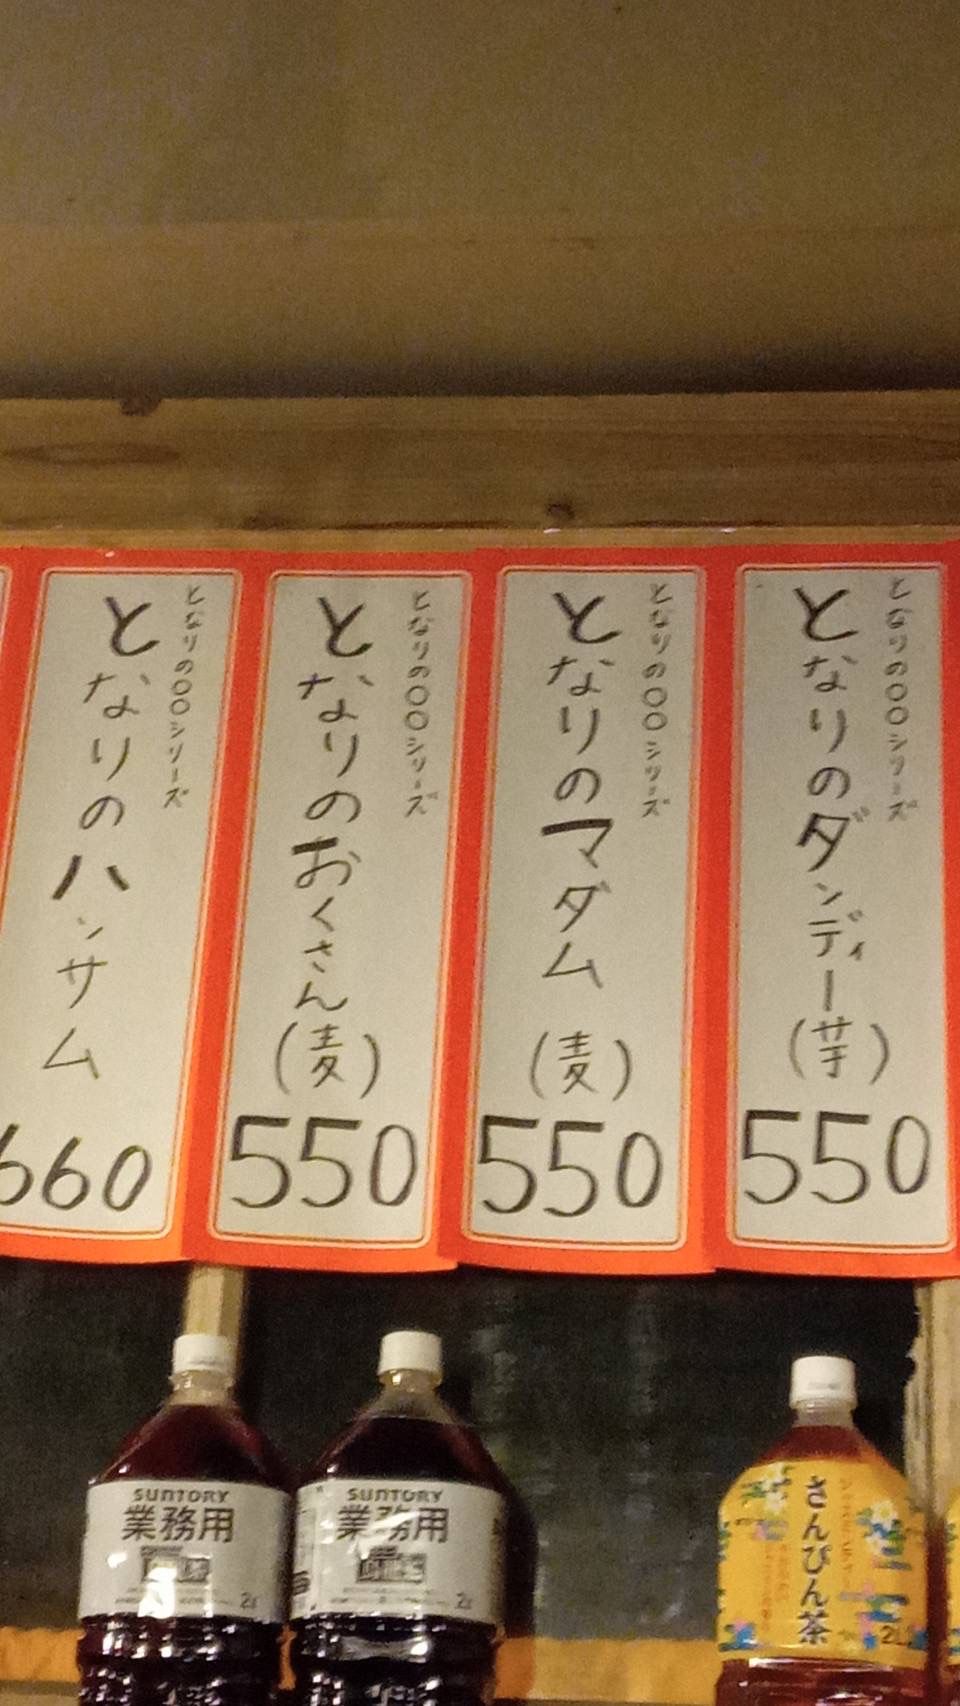 となりの〇〇シリーズ
となりのダンディー(芋)
550
となりの〇〇シリーズ
となりのマダム (麦)
550
となりの〇〇シリーズ
となりのおくさん(麦)
550
となりの〇〇シリーズ
となりのハンサム
660
SUNTORY
業務用
2ℓ
SUNTORY
業務用
2ℓ
さんぴん茶
2L